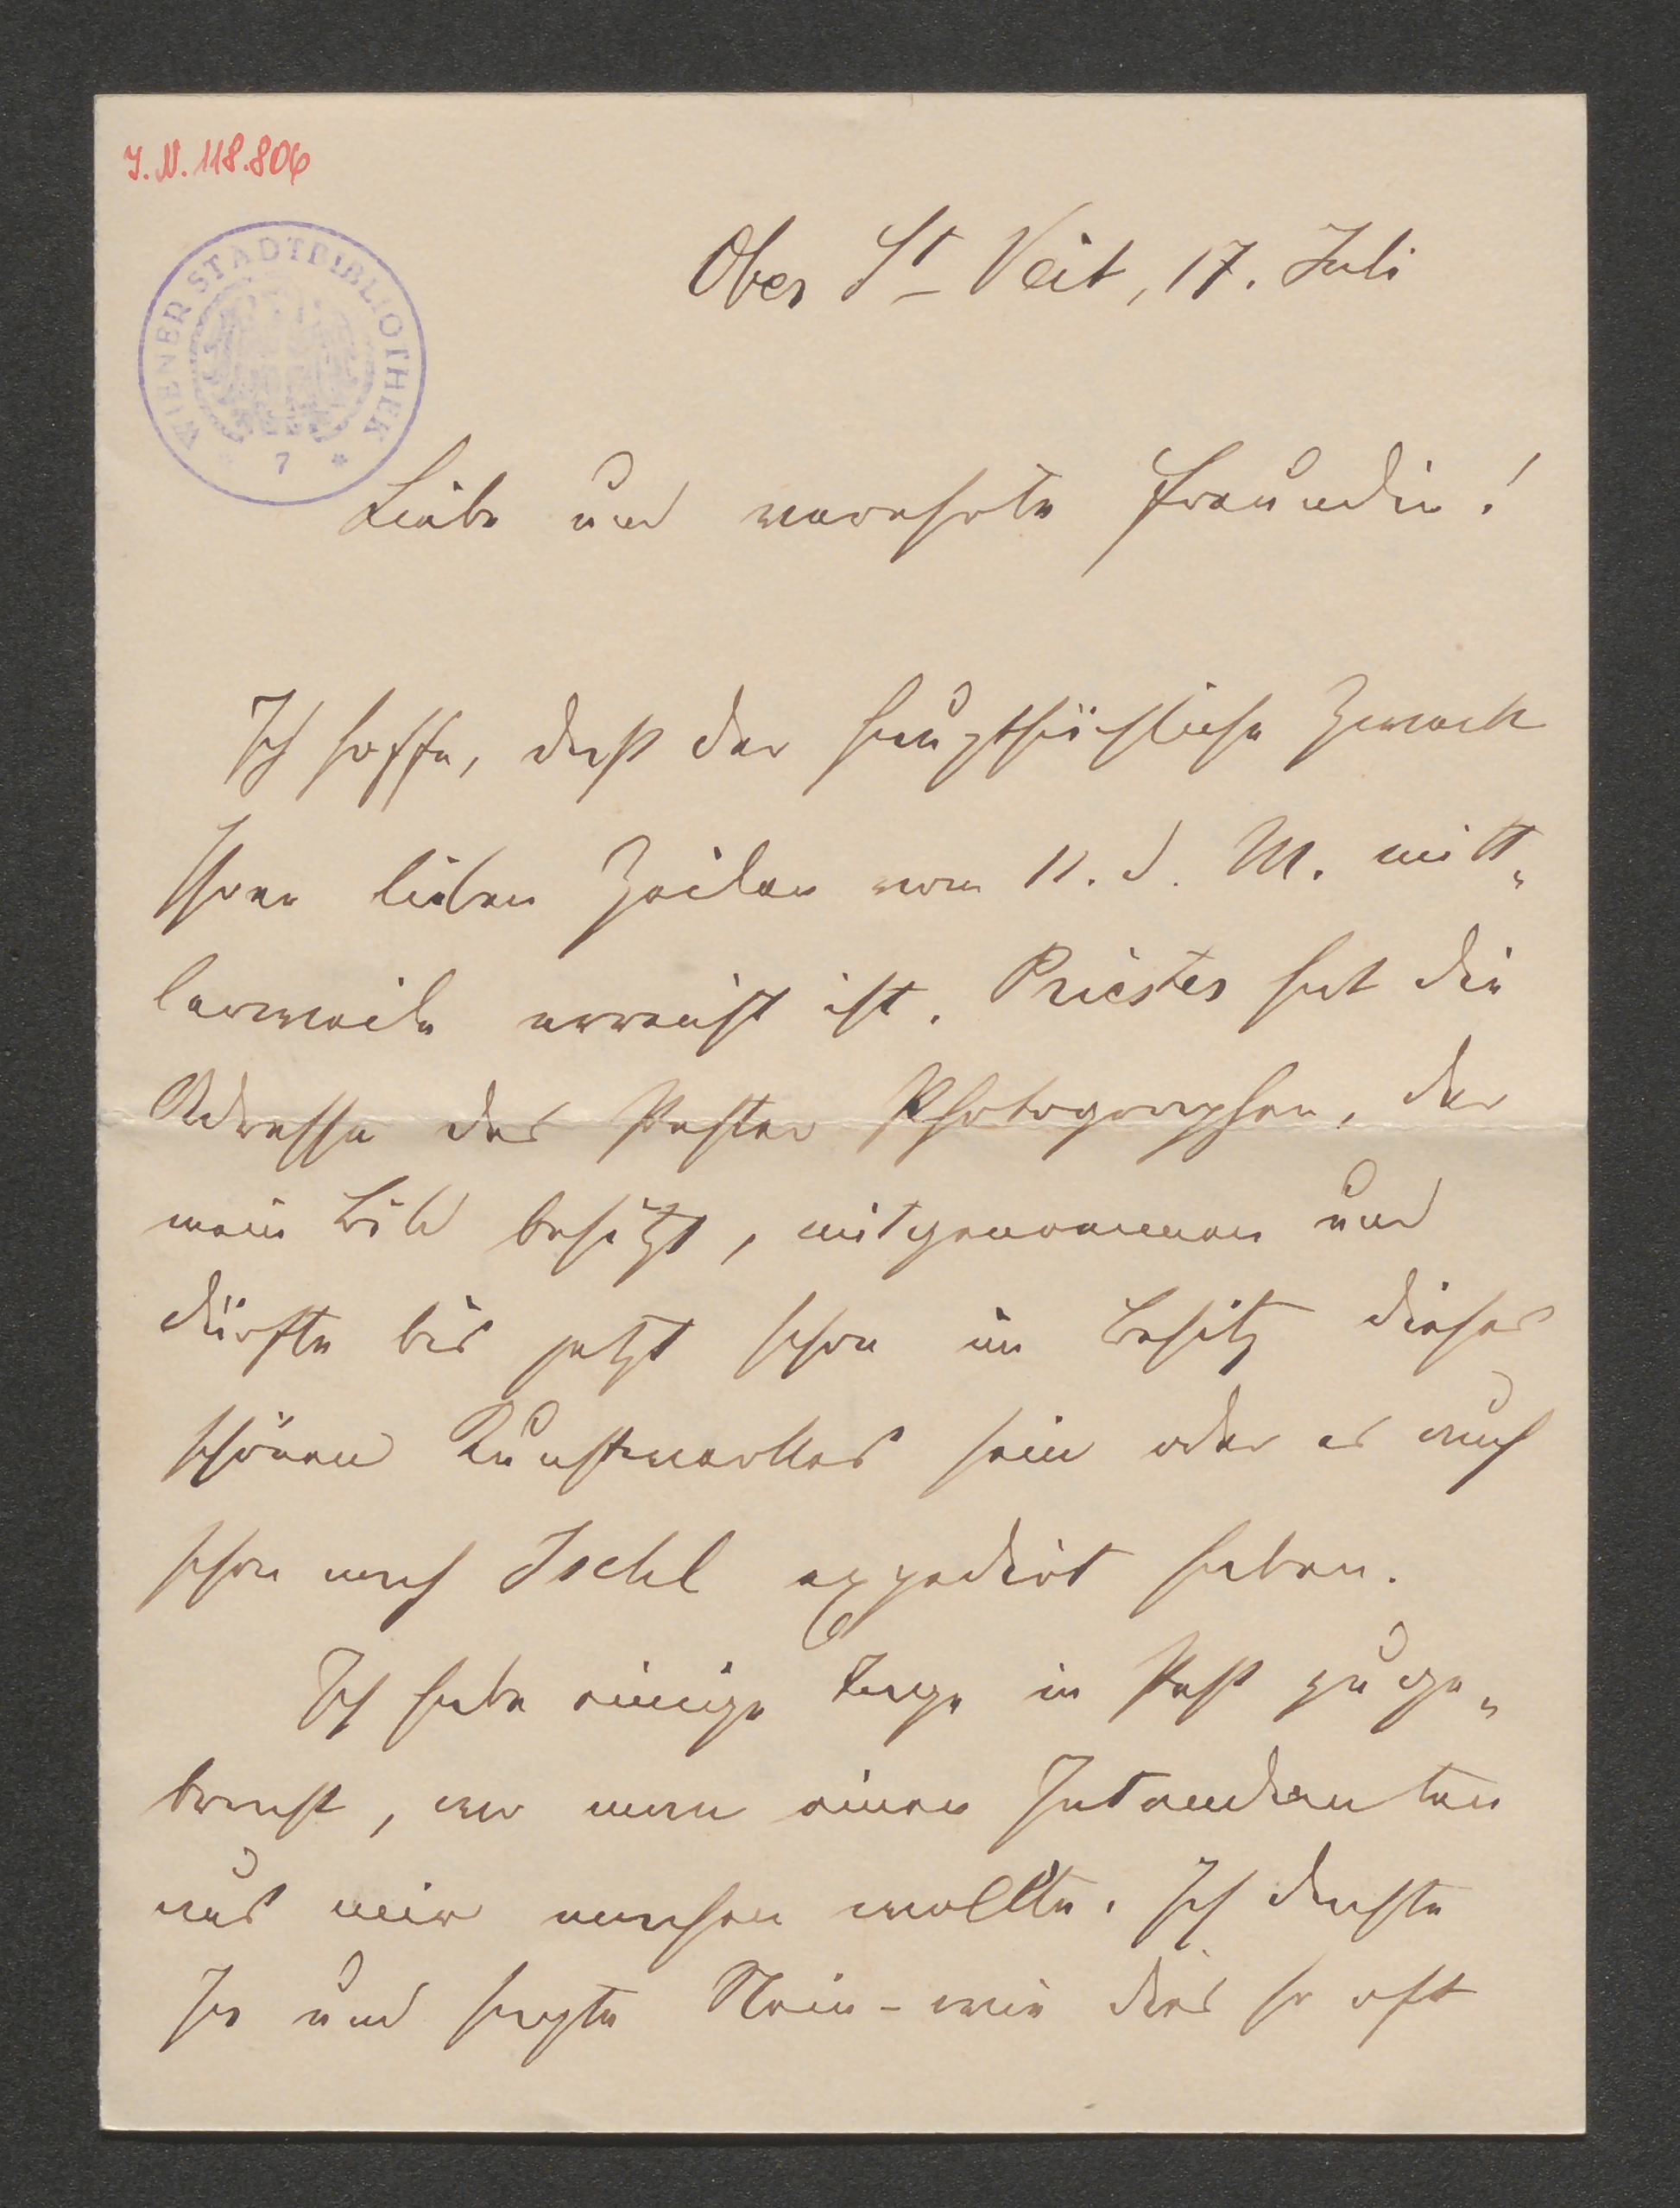 I. N. 118.806
WIENER STADTBIBLIOTHEK
* 7 *
Ober St– Veit, 17. Juli
Liebe und verehrte Freundin!
Ich hoffe, daß der hauptsächliche Zweck
Ihrer lieben Zeilen vom 11. d. M. mitt„
lerweile erreicht ist. Priester hat die
Adresse des Pester Photographen, der
mein Bild besitzt, mitgenommen und
dürfte bis jetzt schon im Besitz dieses
schönen Kunstwerkes sein oder es auch
schon nach Ischl expedirt haben.
Ich habe einige Tage in Pest zuge„
bracht, wo man einen Intendanten
aus mir machen wollte. Ich dachte
Ja und sagte Nein – wie dies so oft